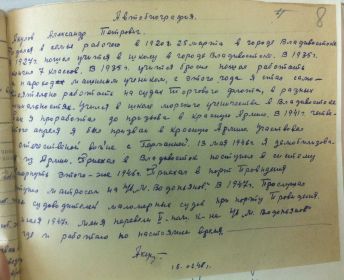 8
Автобиография.
Якунов Александр Петрович.
Родился в семье рабочего в 1920г 25 марта в городе Владивостоке
1927г пошел учится в школу в городе Владивостоке. В 1935г.
окончил 7 классов. В 1935г. учится бросил пошел работать
на пароход машинным учеником, с этого года я стал само-
стоятельно работать на судах торгового флота, в разных
специальностях. Учился в школе морского ученичества в Владивостоке
я проработал до призыва в красную Армию. В 1941г
апреля я был призван в красную Армию. Участвовал
отечественной войне с Германией. 13 мая 1946г я демобилизова-
из Армии. Приехал в Владивосток поступил в систему
этого-же 1946г. Приехал в порт Провидения
матросом на "И. М. Водопьянов". В 1947г. Прослушал
судоводителей маломерных судов при порту Провидения.
1947г. меня перевели II. пом. к-на "И. М. Водопьянов"
где и работаю по настоящее время
48г.